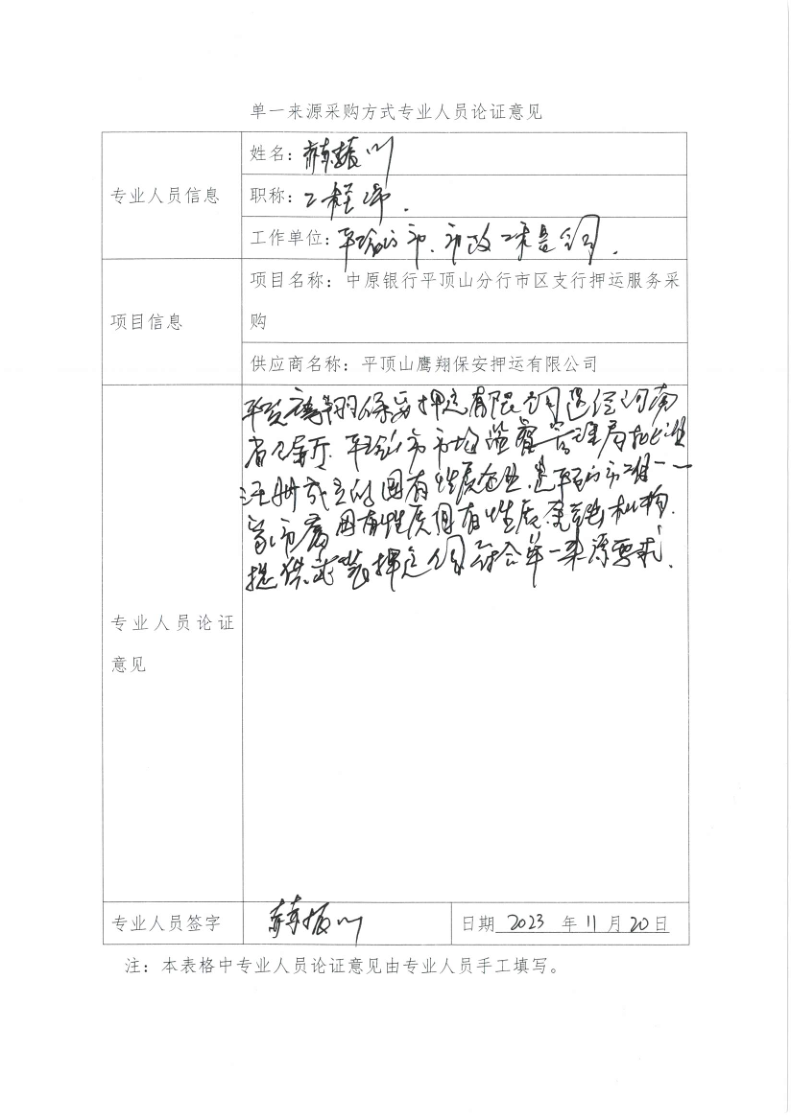 单一来源采购方式专业人员论证意见
专业人员信息
姓名：振川
职称：工程师.
工作单位：平顶山市.市政工程公司.
项目信息
项目名称：中原银行平顶山分行市区支行押运服务采
购
供应商名称：平顶山鹰翔保安押运有限公司
专业人员论证
意见
平顶山鹰翔保安押运有限公司是经河南
省公安厅.平顶山市市场监督管理局批准
注册成立的国有性质企业.是平顶山市唯一一
家 国有性质 金融机构.
提供武装押运公司符合单一来源要求.
专业人员签字
振川
日期 2023 年 11 月 20 日
注：本表格中专业人员论证意见由专业人员手工填写。